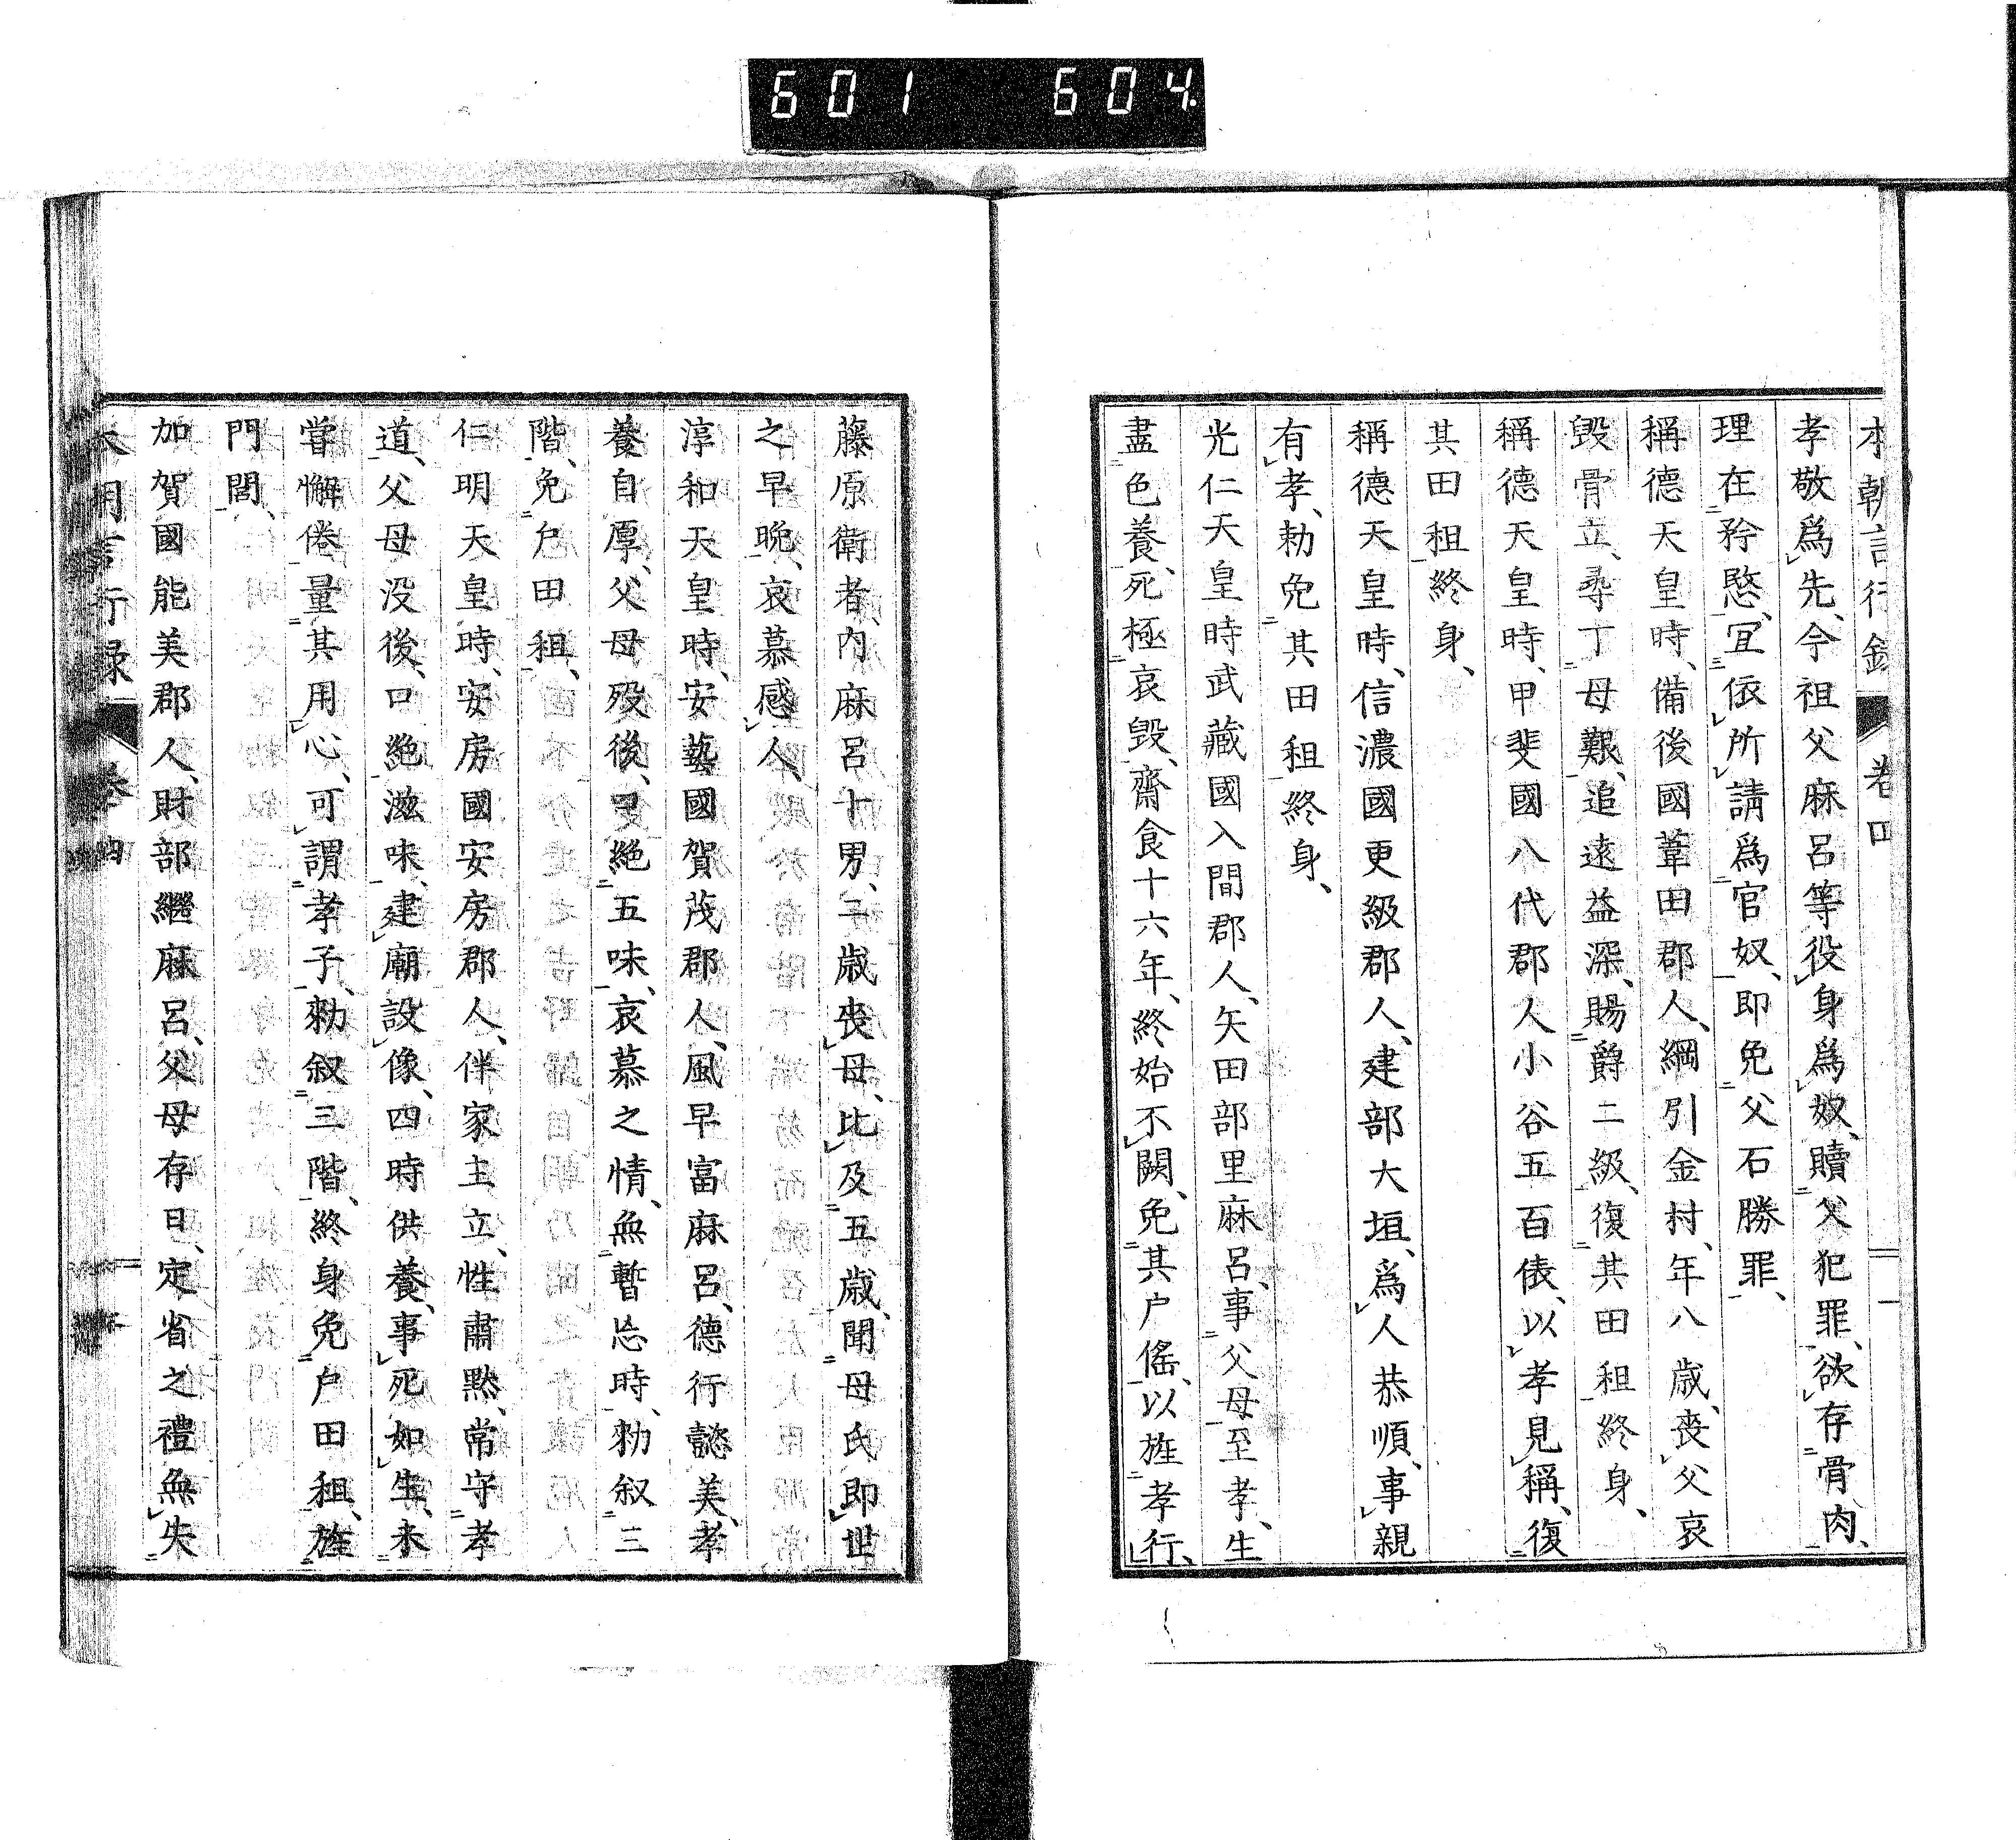 601 604
本朝言行錄 卷四 一
孝敬爲先、今祖父麻呂等役身爲奴、贖父犯罪、欲存骨肉、
理在矜愍、宜依所請爲官奴、即免父石勝罪、
稱德天皇時、備後國葦田郡人、綱引金村、年八歳、喪父哀
毀骨立、尋丁母艱、追遠益深、賜爵二級、復其田租終身、
稱德天皇時、甲斐國八代郡人小谷五百俵、以孝見稱、復
其田租終身、
稱德天皇時、信濃國更級郡人、建部大垣、爲人恭順、事親
有孝、勅免其田租終身、
光仁天皇時武藏國入間郡人、矢田部里麻呂、事父母至孝、生
盡色養、死極哀毀、齋食十六年、終始不闕、免其户傜、以旌孝行、
藤原衛者、内麻呂十男、二歳喪母、比及五歳、聞母氏即世
之早晩、哀慕感人、
淳和天皇時、安藝國賀茂郡人、風早富麻呂、德行懿美、孝
養自厚、父母殁後、口絶五味、哀慕之情、無暫忘時、勅叙三
階、免户田租、
仁明天皇時、安房國安房郡人、伴家主立、性肅黙、常守孝
道、父母没後、口絶滋味、建廟設像、四時供養、事死如生、未
嘗懈倦、量其用心、可謂孝子、勅叙三階、終身免户田租、旌
門閭、
加賀國能美郡人、財部繼麻呂、父母存日、定省之禮無失
本朝言行録 卷四 二